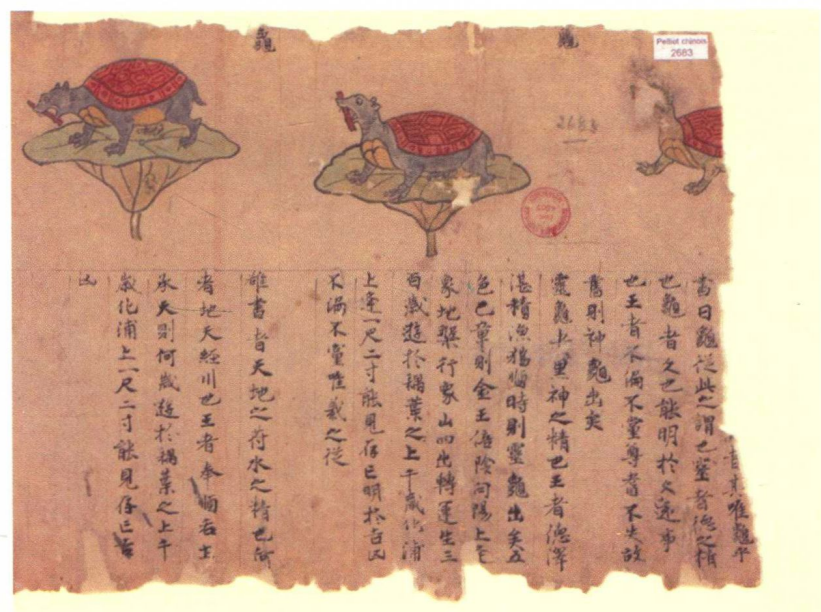 Pelliot chinois
2683
2683
龜
龜
耆其唯龜乎
書曰龜從此之謂也靈者德之精
也龜者久也能明於久遠事
也王者不偏不黨尊耆不失故
舊則神龜出矣
靈龜者黑神之精也王者德澤
湛積漁獵順時則靈龜出矣五
色巴章則金玉倍陰向陽上
象地槃行象山四出轉運生三
百歲遊於藕葉之上千歲化浦
上逢一尺二寸能見存亡明於吉凶
不偏不黨唯義之從
雒書者天地之符水之精也何
者地天經川也王者奉順后土
承天則何歲遊於藕葉之上千
歲化浦上一尺二寸能見存亡吉
凶